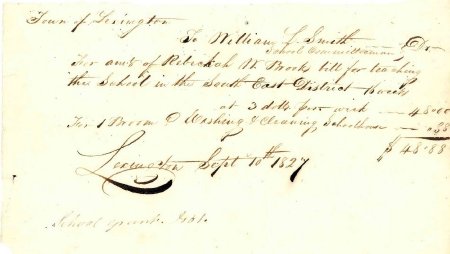 Town of Lexington
To William L. Smith Dr
School Committeeman
For amt of Rebeckah W Brooks bill for teaching
the School in the South East District 16 weeks
at 3 dolls per week — 48.00
For 1 Broom & Washing & Cleaning Schoolhouse — 0.88
$ 48.88
Lexington Sept 10th 1827
School grant